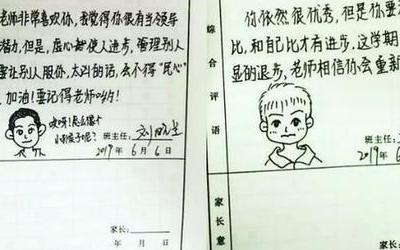 老师非常喜欢你,我觉得你很有当领导
潜力,但是,虚心才使人进步,管理别人
要让别人服你,太凶的话,会不得“民心”
加油!要记得老师叫你!
哎呀!怎么像个
小刺猬子呢?
班主任:刘
2019年6月6日
家长:
年 月 日
综合评语
你依然很优秀,但是你要
比,和自己比才有进步,这学期
显的退步,老师相信你会重新
班主任:
2019年6
家长意
家长:
年